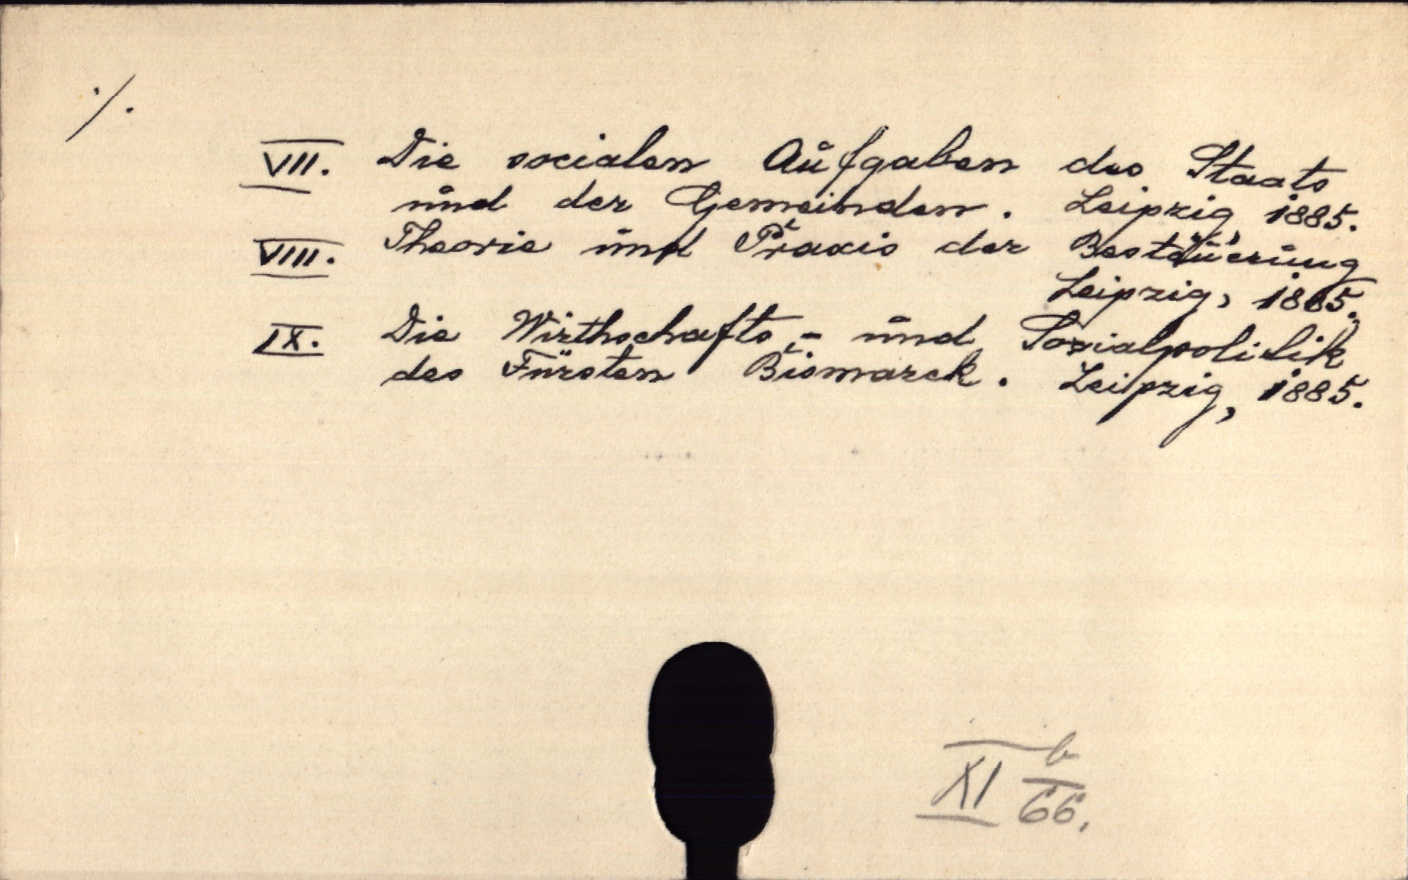 ./.
VII. Die socialen Aufgaben des Staats
und der Gemeinden. Leipzig, 1885.
VIII. Theorie und Praxis der Besteuerung
Leipzig, 1885.
IX. Die Wirthschafts- und Sozialpolitik
des Fürsten Bismarck. Leipzig, 1885.
XI b
66.